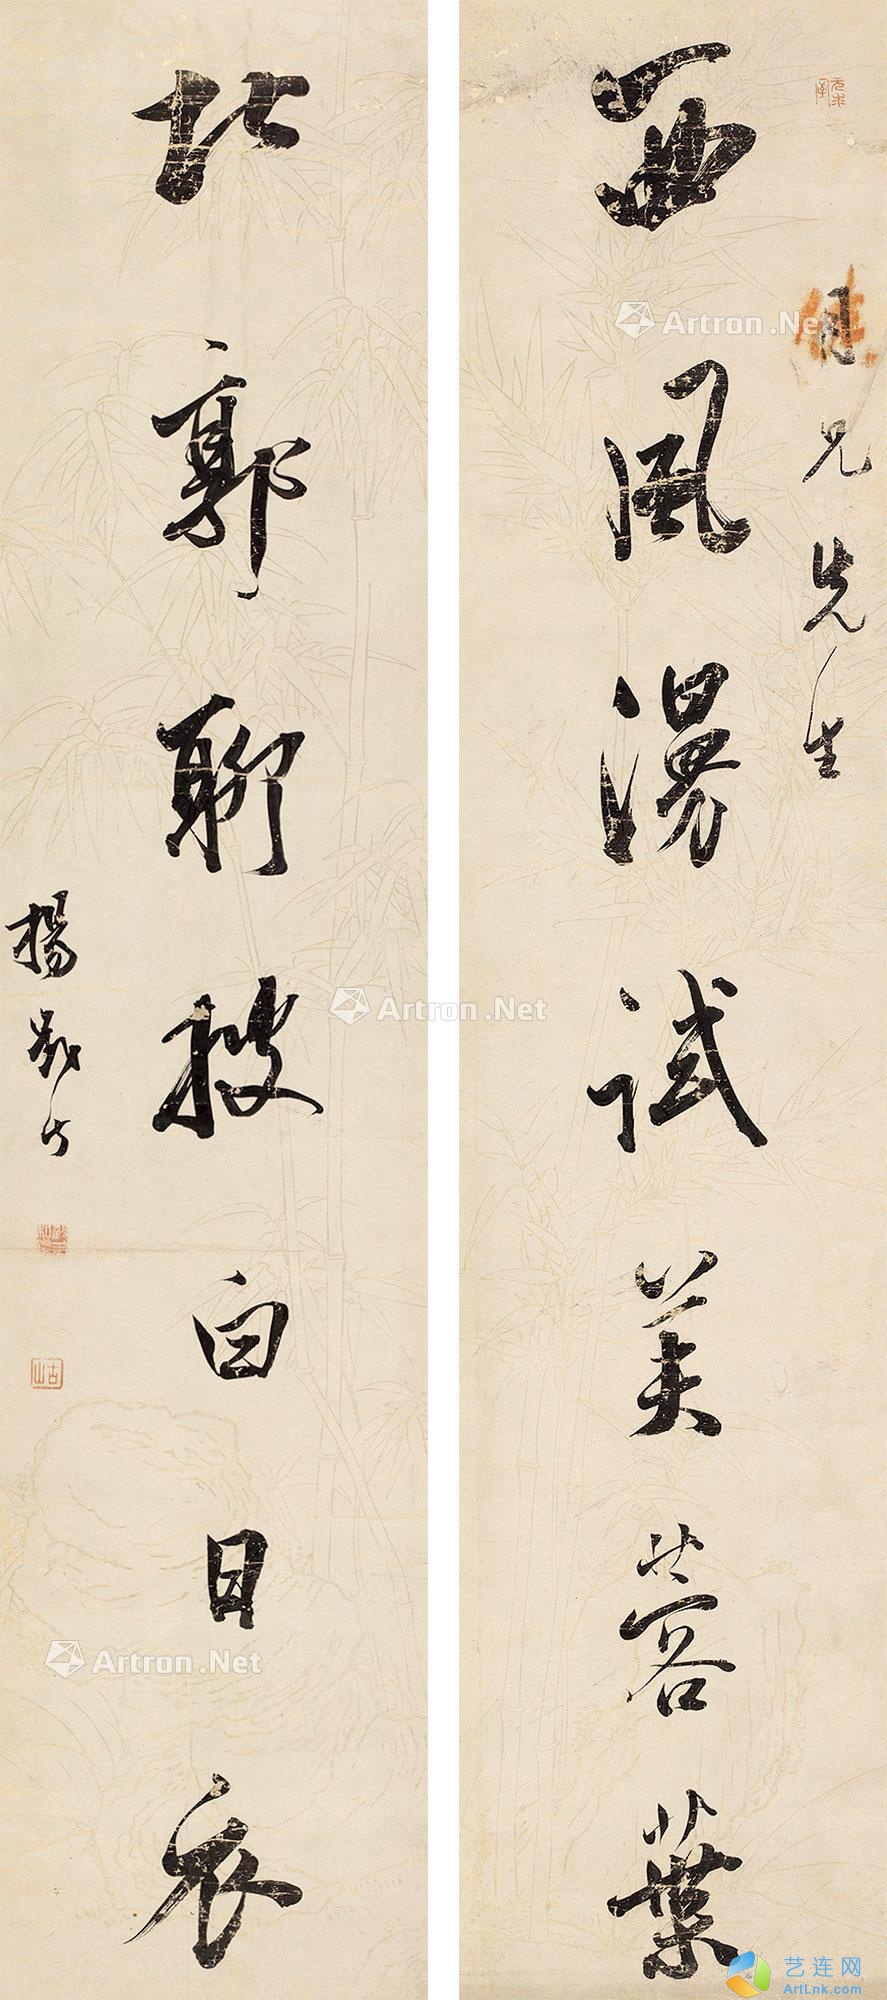 西風漫試芙蓉葉
兄先生
北郭聊披白日衣
楊
古山
Artron.Net
Artron.Net
Artron.Net
艺连网
ArtLnk.com